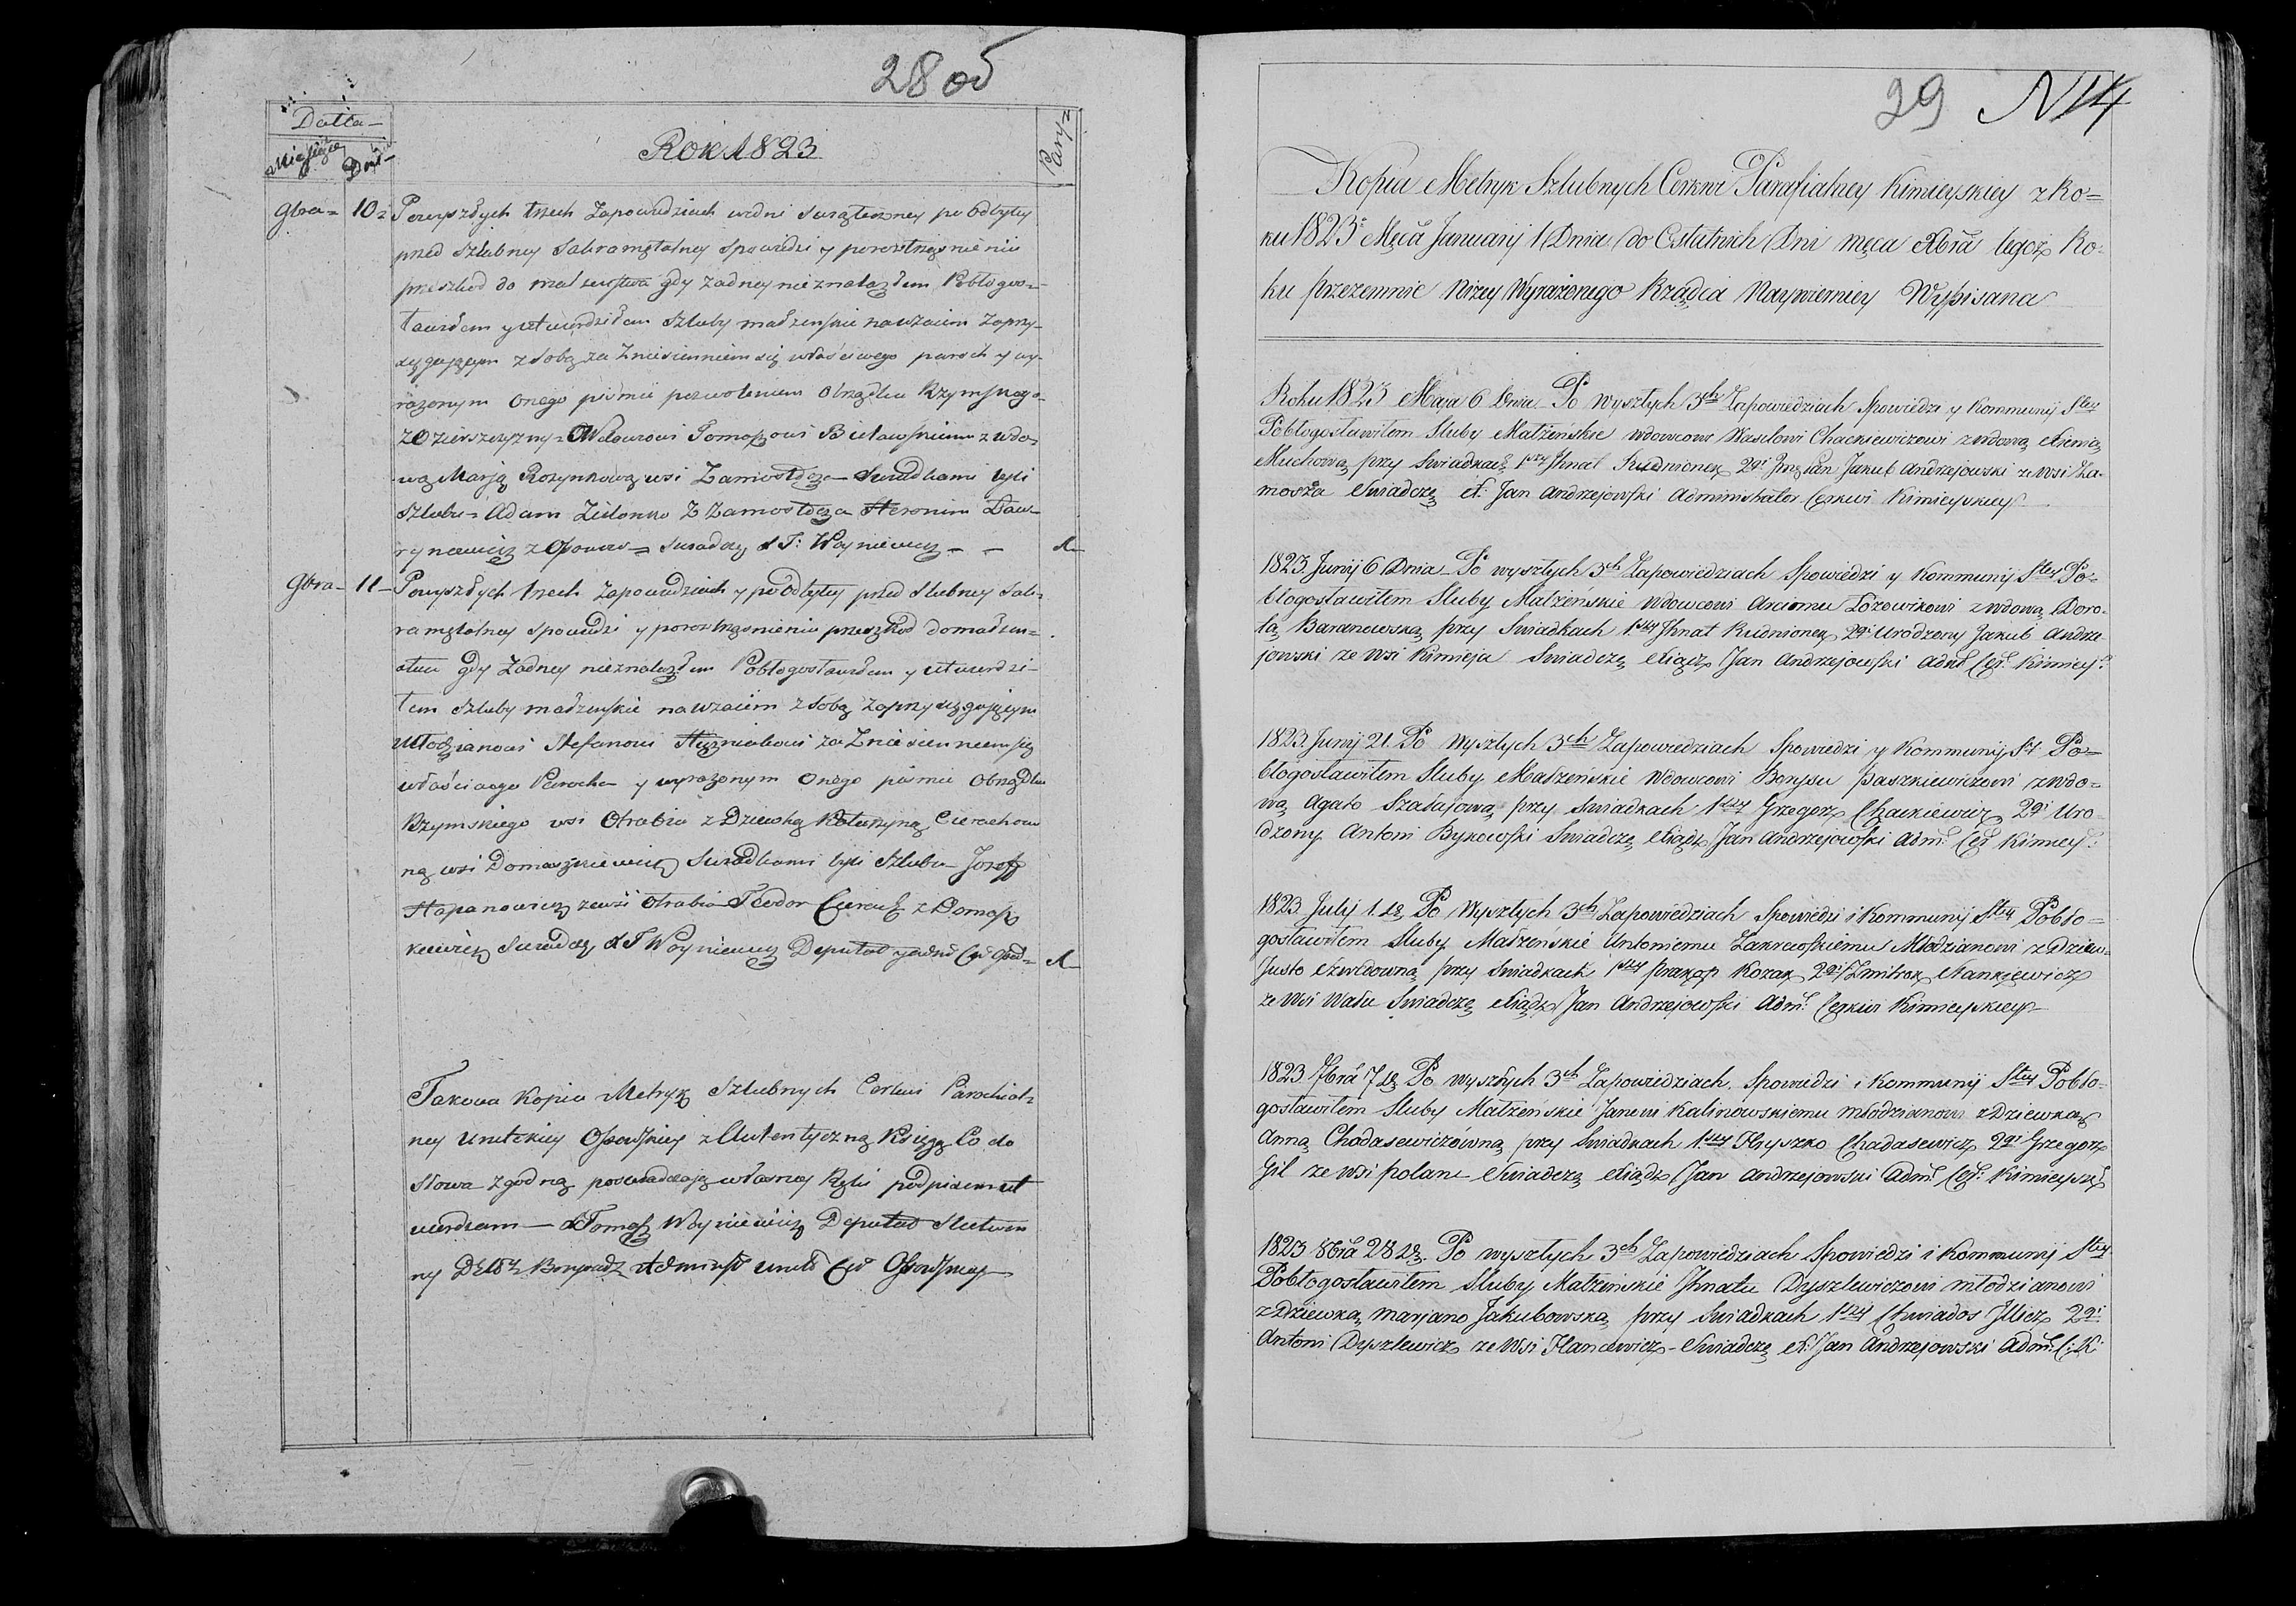 28 об
Datta
Miesiąca
Dni
Rok 1823
Pary
9bra 10 Powyszłych trzech Zapowiedziach w dni Swiąteczney po odbytey
przed Szlubney Sakramętalney Spowiedzi y porostrząsnieniu
przeszkod do małzeństwa gdy żadney nieznalazłem Pobłogos-
ławiłem y utwierdziłem Szluby małzenskie nawzaiem Zaprzy-
sięgaiącym z Sobą za Zniesienniem się właściwego paroch y wy-
rażonym onego piśmie pozwoleniem Obrządku Rzymskiego
z Wdowcowi Tomaszowi z wdo-
wą Marją Rozynkową wsi Zamostocza Swiadkami byli
Szlubu Adam Zielonko Z Zamostocza Heronim Daw-
rynowicz z Osowo Swiadczę X T: Woyniewicz
9bra 11 Powyszłych trzech Zapowiedziach y po odbytey przed Slubney Sak-
ramętalney Spowiedzi y porostrząsnieniu przeszkod do małzen-
stwa gdy Zadney nieznalazłem Pobłogosławiłem y utwierdzi-
łem Szluby małzenskie nawzaiem z Sobą Zaprzysięgaiącym
Młodzianowi Stefanowi za Zniesienniem się
właściwego Parocha y wyrażonym onego piśmie Obrządku
Rzymskiego wsi Otrubia z Dziewką Katarzyną
ną wsi Domaszkiewicz Swiadkami byli Szlubu Jozeff
Stapanowicz zewsi Otrubia Teodor z Domasz
kiewicz Swiadczę X T Woyniewicz Deputat
Takowa Kopia Metryk Szlubnych Cerkwi Parochial-
ney Unitskiey Osowskiey z Autentyczną Księgą Co do
Słowa Zgodną poswiadczaiąc własney Ręki podpisem ut
wierdzam X Tomasz Woyniewicz Deputat
ny Administ Osowskiey
29 N 14
Kopia Metryk Szlubnych Cerkwi Parafialney Kimieyskiey z Ro=
ku 1823 Męca Januarij 1 Dnia do Ostatnich Dni męca Xbra tegoż Ro-
ku przezemnie Niżey Wyrażonego Rządca Naywierniey Wypisana
Roku 1823 Maja 6 Dnia Po wyszłych 3ch Zapowiedziach Spowiedzi y Kommunij Stey
Pobłogosławiłem Sluby Małżeńskie wdowcowi Wasilowi Chackiewiczowi z wdową Xienią
Michową przy Swiadkach 1szy Jhnat Rudnionek 2gi Jmć pan Jakub Andrzejowski ze Wsi Za-
mosza Swiadczę X: Jan Andrzejowski Administrator Cerkwi Kimieyskiey
1823 Junij 6 Dnia Po wyszłych 3ch Zapowiedziach Spowiedzi y Kommunij Stey Po-
błogosławiłem Sluby Małżeńskie Wdowcowi Arciomu Łozowikowi z wdową Doro-
tą Baranowską przy Swiadkach 1szy Jhnat Rudnionek 2gi Urodzony Jakub Andrze
jowski ze Wsi Kimieja Swiadczę Xiądz Jan Andrzejowski Adm: Cer: Kimiey:
1823 Junij 21. Po Wyszłych 3ch Zapowiedziach Spowiedzi y Kommunij St Po=
błogosławiłem Sluby Małżeńskie Wdowcowi Borysu Paszkiewiczowi z wdo=
wą Agato Szałajową przy Swiadkach 1szy Grzegorz Chackiewicz 2gi Uro
dzony Antoni Bykowski Swiadczę Xiądz Jan Andrzejowski Adm: Cer Kimiey:
1823 Julij 1. Po Wyszłych 3ch Zapowiedziach Spowiedzi i Kommunij Stey Pobło=
gosławiłem Sluby Małżeńskie Antoniemu Zakrewskiemu Młodzianowi z Dziew=
Justo przy Swiadkach 1szy Prakop Kozak 2gi Zmitrok Nankiewicz
ze Wsi Wału Swiadczę Xiądz Jan Andrzejowski Adm: Cerkwi Kimieyskiey
1823 7bra 7 Po wyszłych 3ch Zapowiedziach Spowiedzi i Kommunij Stey Pobło-
gosławiłem Sluby Małżeńskie Janowi Kalinowskiemu młodzianowi z Dziewką
Anną Chodasewiczówną przy Swiadkach 1szy Hryszko Chadasewicz 2gi Grzegorz
Gil ze wsi polane Swiadczę Xiądz Jan Andrzejowski Adm: Cer: Kimieysk
1823 8bra 28 Po wyszłych 3ch Zapowiedziach Spowiedzi i Kommunij Stey
Pobłogosławiłem Sluby Małżeńskie Jhnatu Dyszlewiczowi młodzianowi
z Dziewką Marjano Jakubowską przy Swiadkach 1szy Chwiados Jllicz 2gi
Antoni Dyszlewicz ze Wsi Hancewicz - Swiadczę X: Jan Andrzejowski Adm: C: K: